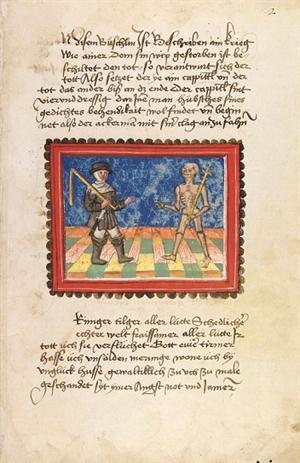 2
In disem Büschlin Ist Beschriben ain krieg
Wie ainer Dem sin wip gestorben ist be
schiltet den tot so verantwirt sich der
tott Also setzet der ye ain cappittl vn der
tot das ander biß an dz ende Der cappittl sint
vier vnd dressig dar Inne man hübsches sines
gedichtes behendikait wol findet vn begin
net also der ackerman mit sinr clag an zu fahn
Rimger tilger aller lütte Schedlicher
echter welt fraissamer aller lütte Ir
tott üch sie verfluchet Gott euwer tirmer
hasse üch vnsälden merunge wone vch by
vnglück husse gewaltiklich zu vch zu male
geschandet syt ymer Angst not vnd Jamer